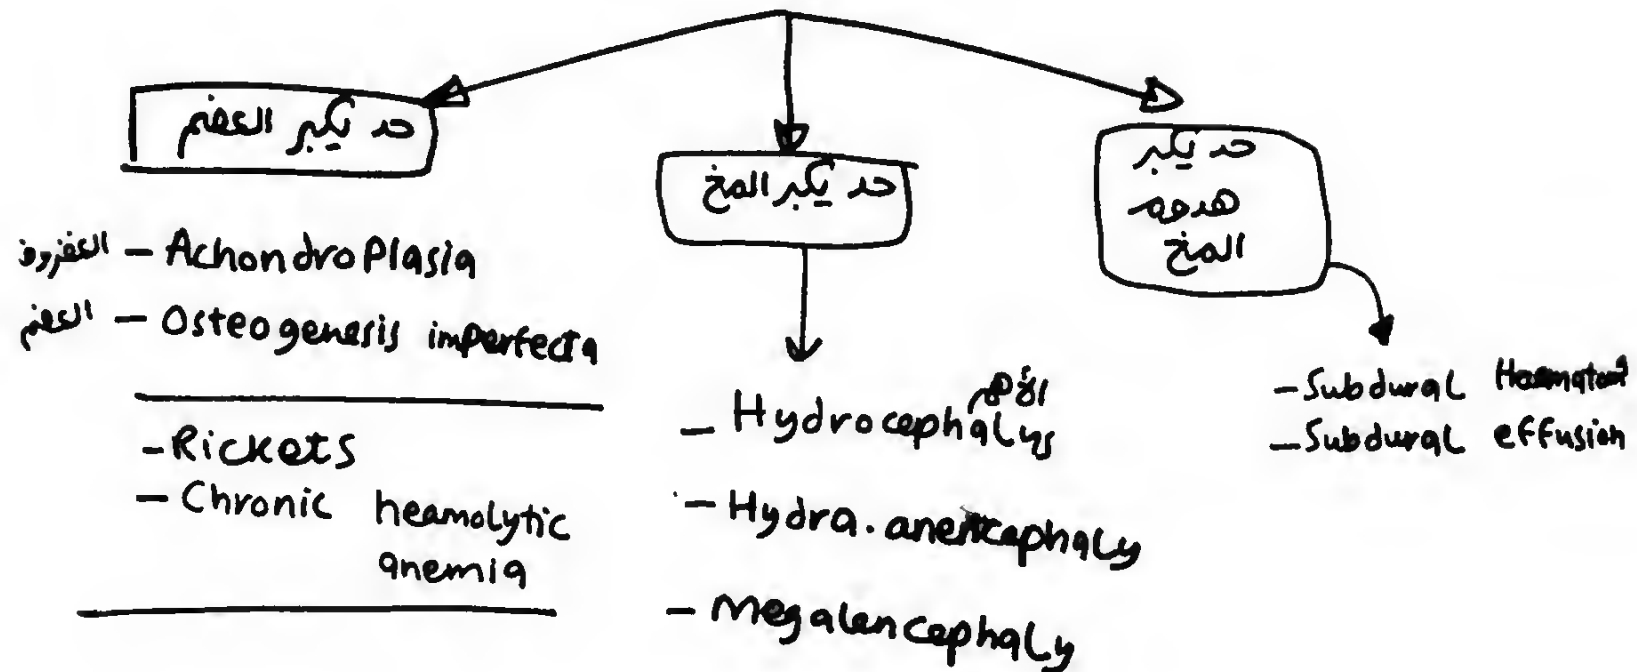 حد يكبر العضم
العضروف – Achondroplasia
العضم – Osteogenesis imperfecta
– Rickets
– Chronic heamolytic
anemia
حد يكبر المخ
الأهم
– Hydrocephalus
– Hydra.anencephaly
– Megalencephaly
حد يكبر
هدوم
المخ
– Subdural Haematoma
– Subdural effusion